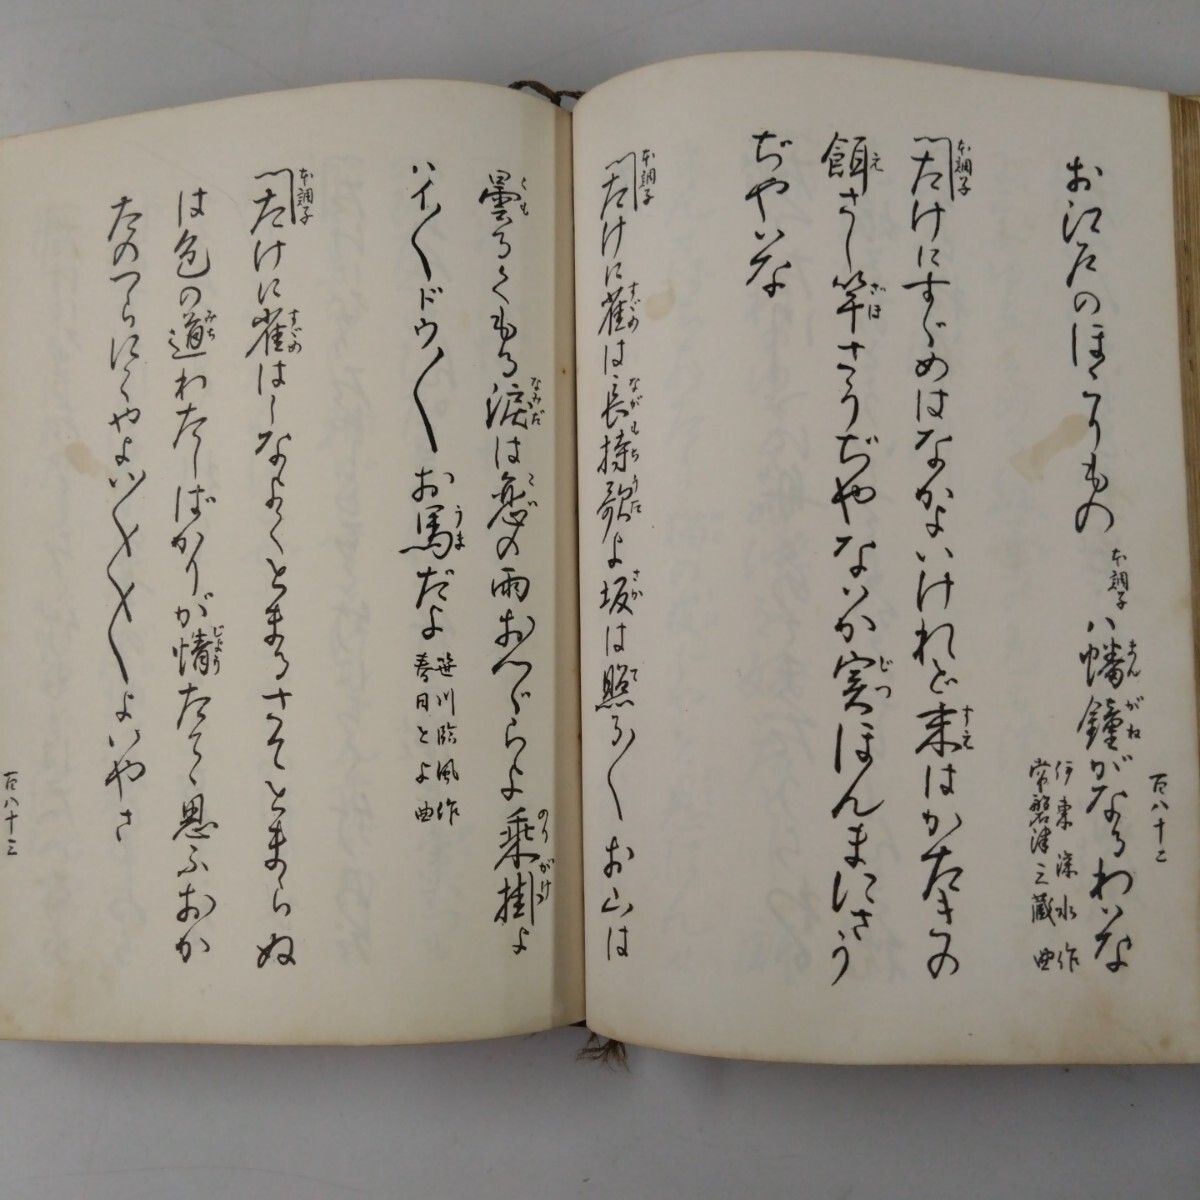 百八十二
お江戸のほこりもの 本調子 八幡鐘がなるわいな
伊東深水作
常磐津三蔵曲
本調子 たけにすゞめはなかよいけれど末はかたきの
餌さし竿さうぢやないか実ほんまにさう
ぢやいな
本調子 たけに雀は長持歌よ坂は照る〳〵お山は
曇るくもる涙は恋の雨おつゞらよ乗掛よ
ハイ〳〵ドウ〳〵お馬だよ
笹川臨風作
春日とよ曲
本調子 たけに雀はしなよくとまるさてとまらぬ
は色の道わたしばかりが情たてゝ思ふおか
たのつらにくやよい〳〵〳〵よいやさ
百八十三